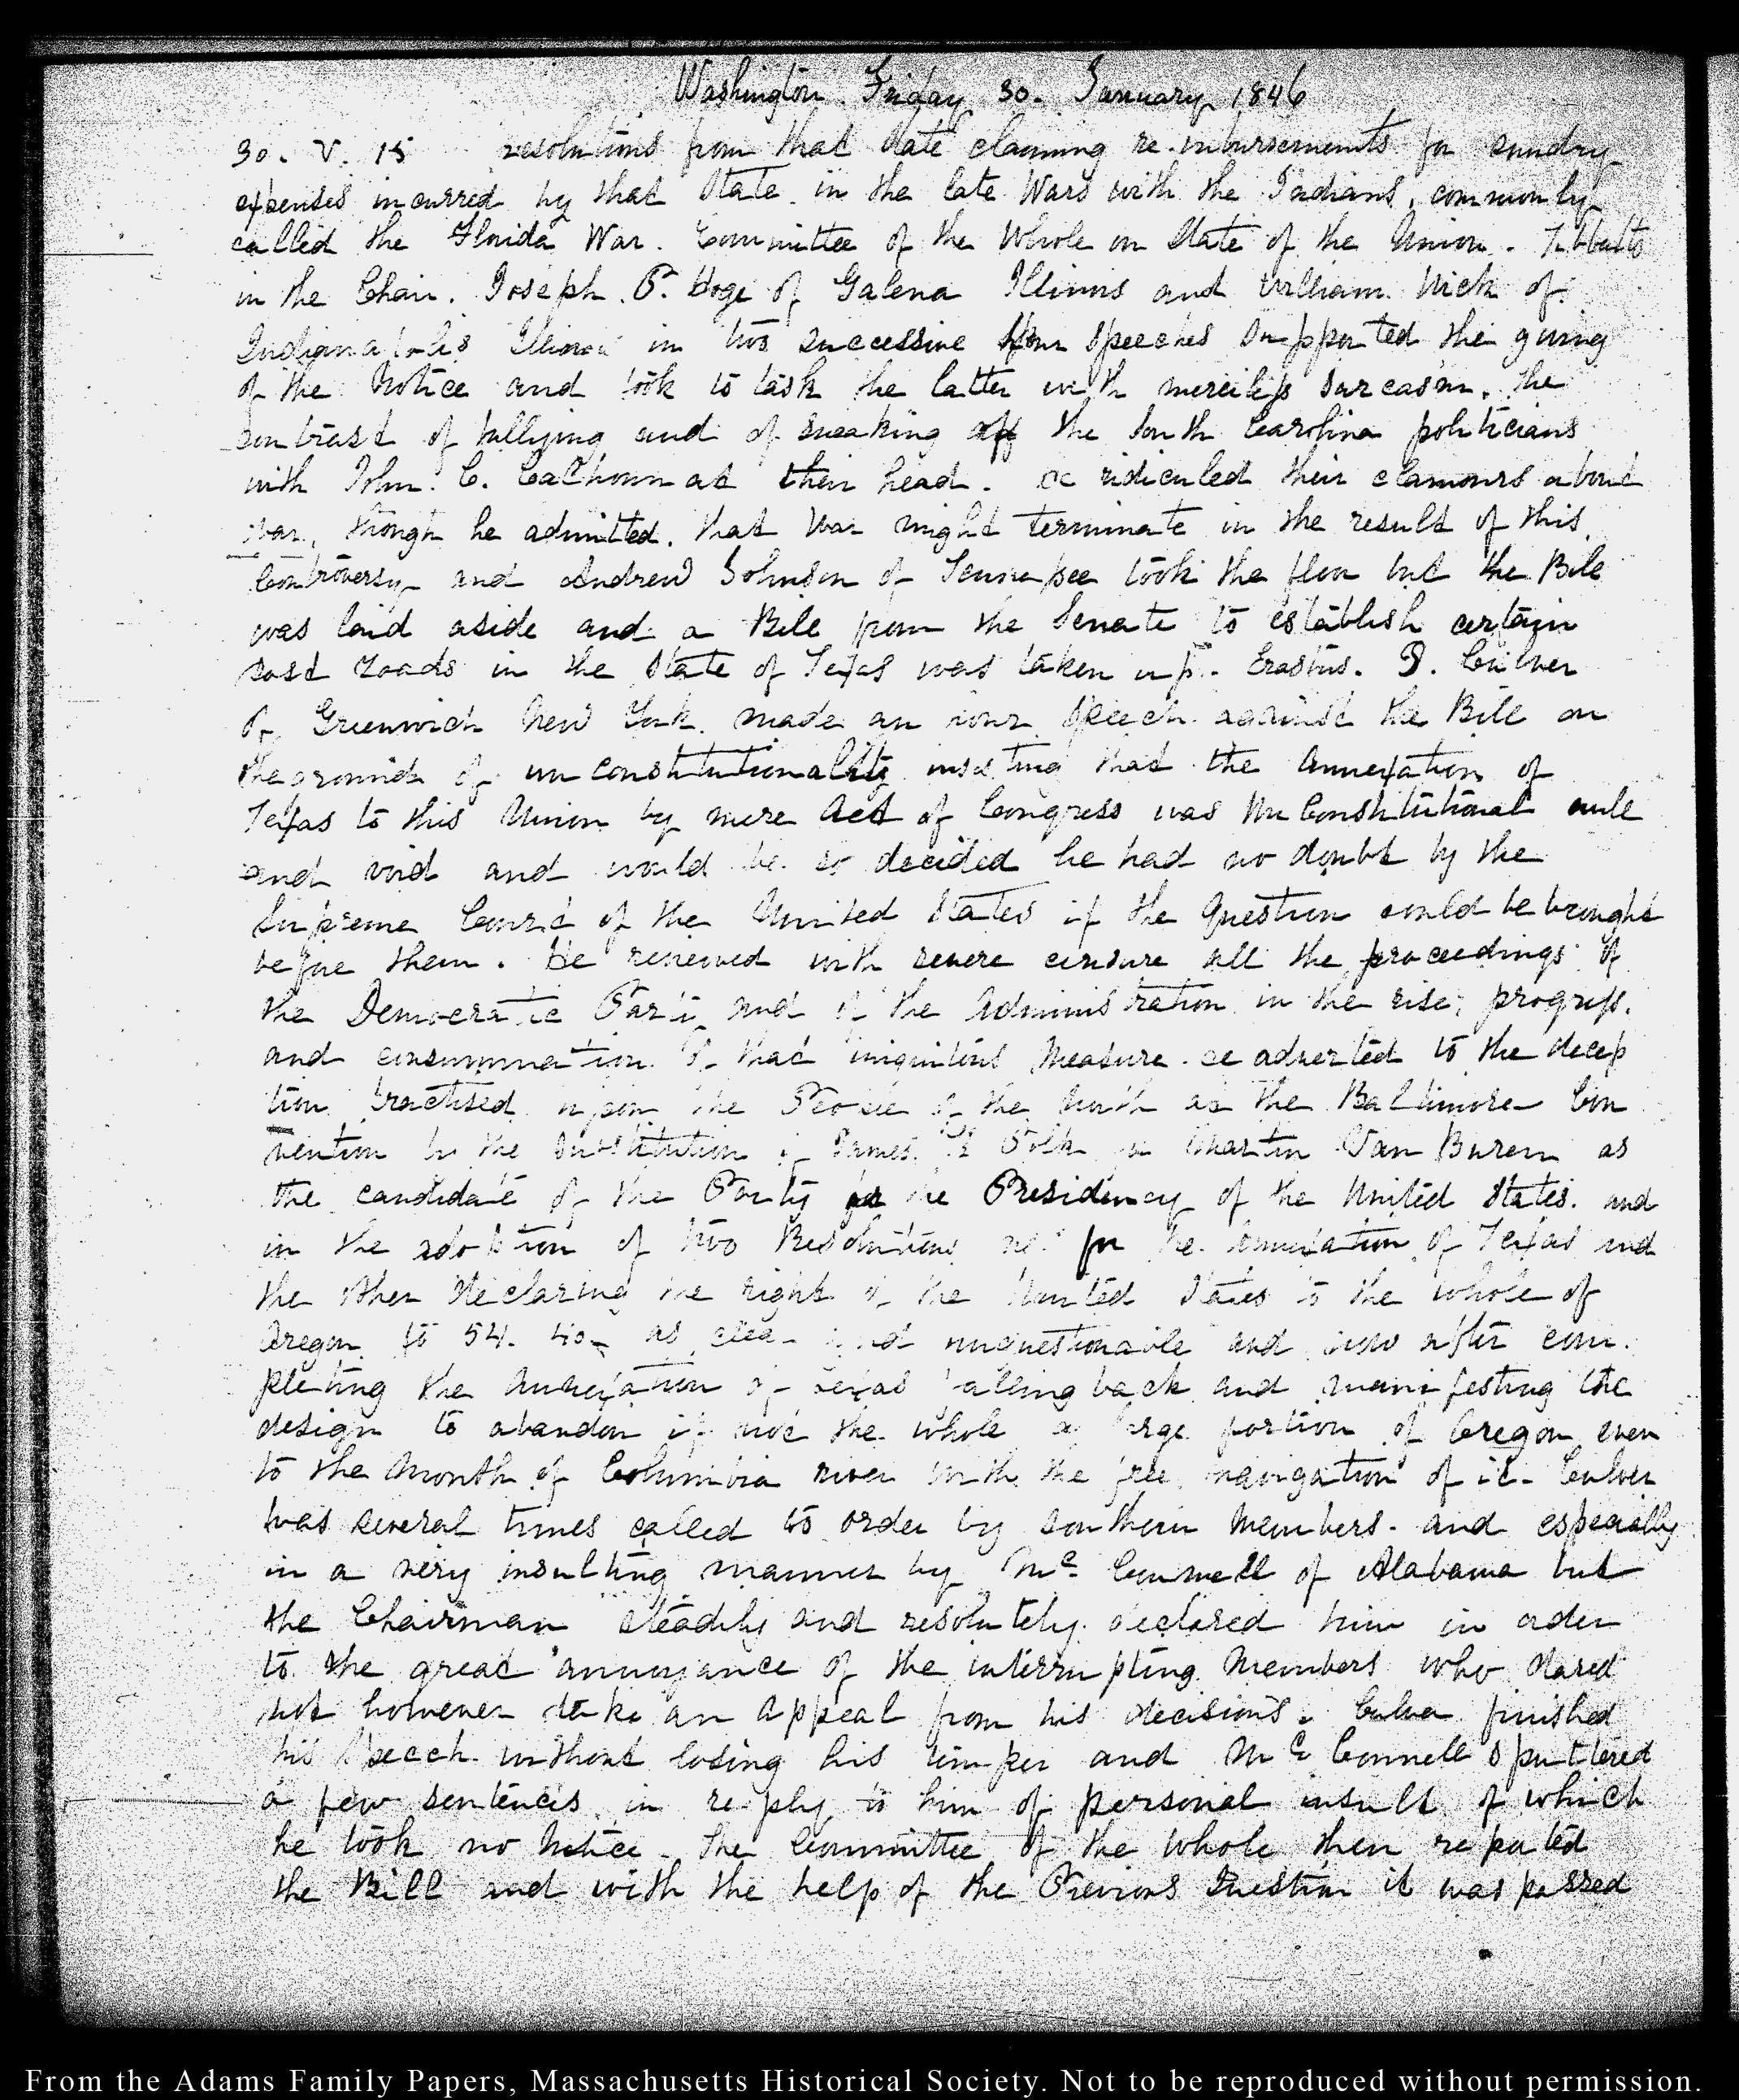 Washington Friday 30. January 1846
30. V. 15 resolutions from that State claiming re-imbursements for sundry
expenses incurred by that State in the late Wars with the Indians, commonly
called the Florida War. Committee of the Whole on State of the Union. Tibbatts
in the Chair. Joseph P. Hoge of Galena Illinois and William Wick of
Indianapolis Illinois in two successive hour speeches supported the giving
of the Notice and took to task the latter with merciless sarcasm, the
contrast of bullying and of sneaking off the South Carolina politicians
with John. C. Calhoun at their head. He ridiculed their clamours about
war, though he admitted, that War might terminate in the result of this
Controversy and Andrew Johnson of Tennessee took the floor but the Bill
was laid aside and a Bill from the Senate to establish certain
post roads in the State of Texas was taken up. Erastus. D. Culver
of Greenwich New York made an hour speech against the Bill on
the ground of unconstitutionality insisting that the Annexation of
Texas to this Union by mere Act of Congress was UnConstitutional null
and void and would be so decided he had no doubt by the
Supreme Court of the United States if the Question could be brought
before them. He reviewed with severe censure all the proceedings of
the Democratic Party and of the Administration in the rise, progress.
and consummation of that iniquitous Measure. He adverted to the decep
tion practised upon the People of the North in the Baltimore Con
vention by the substitution of James K Polk for Martin Van Buren as
the candidate of the Party for the Presidency of the United States. and
in the adoption of two Resolutions one for the annexation of Texas and
the other declaring the right of the United States to the whole of
Oregon to 54. 40. as clear and unquestionable and now after com.
pleting the Annexation of Texas falling back and manifesting the
design to abandon if not the whole a large portion of Oregon even
to the Mouth of Columbia river with the free navigation of it. Culver
was several times called to order by southern Members. and especially
in a very insulting manner by McConnell of Alabama but
the Chairman steadily and resolutely declared him in order
to the great annoyance of the interrupting Members who dared
not however take an Appeal from his decisions. Culver finished
his speech without losing his temper and McConnell sputtered
a few sentences in reply to him of personal insult of which
he took no Notice. The Committee of the whole then reported
the Bill and with the help of the Previous Question it was passed
From the Adams Family Papers, Massachusetts Historical Society. Not to be reproduced without permission.